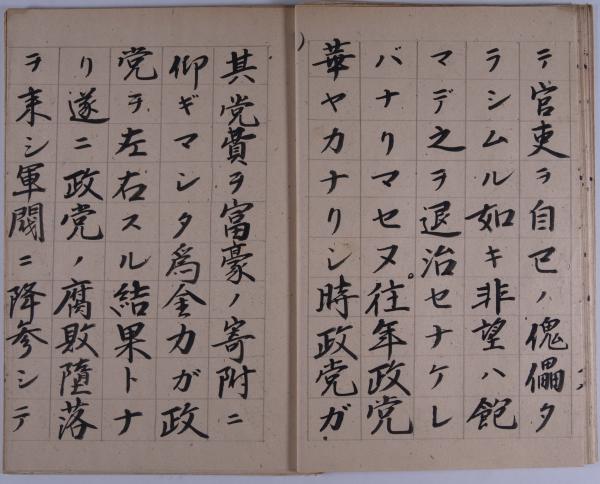 テ官吏ヲ自己ノ傀儡タ
ラシムル如キ非望ハ飽
マデ之ヲ退治セナケレ
バナリマセヌ。往年政党
華ヤカナリシ時政党ガ
其党費ヲ富豪ノ寄附ニ
仰ギマシタ為金力ガ政
党ヲ左右スル結果トナ
リ遂ニ政党ノ腐敗堕落
ヲ来シ軍閥ニ降参シテ